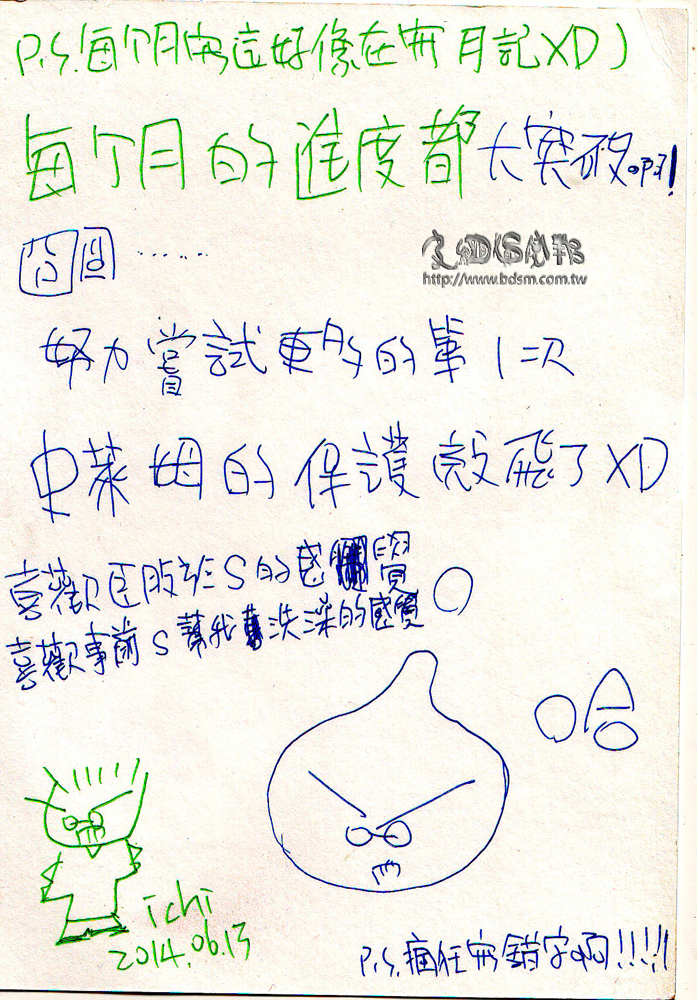 P.S.每个月寫這好像在寫月記XD)
每个月的進度都大突破啊!
囧囧……
皮繩愉虐邦
http://www.bdsm.com.tw
努力嘗試更多的第1次
史萊姆的保護殼飛了XD
喜歡屁股 S的感覺
喜歡事前S幫我洗澡的感覺
哈
ichi
2014.06.13
P.S.瘋狂寫錯字啊!!!!!